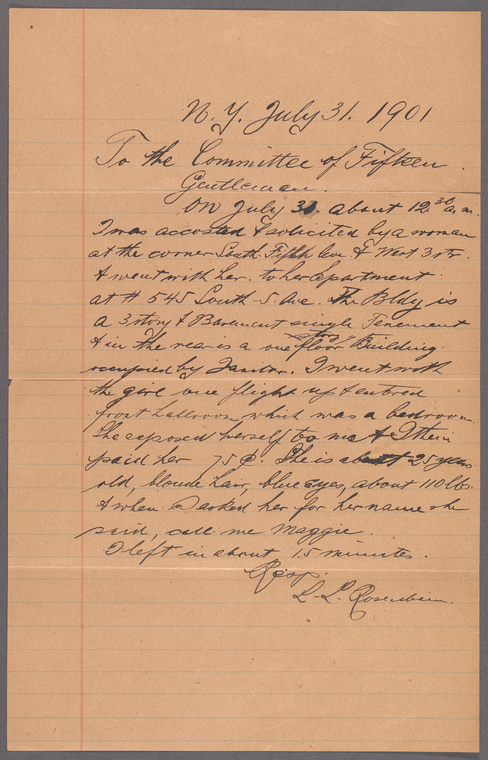 N. Y. July 31. 1901
To the Committee of Fifteen.
Gentlemen.
On July 30 about 12 30 a.m.
I was accosted & solicited by a woman
at the corner South Fifth Ave & West 3 str.
& went with her to her apartment
at # 545 South-5 Ave. The Bldg is
a 3 story & Basement single Tenement
& in the rear is a one floor Building
occupied by Janitor. I went with
the girl one flight up & entred
front hallroom which was a bedroom.
She exposed herself to me & I then
paid her 75 ¢. She is about 25 years
old, blonde hair, blue eyes, about 110 lb.
& when I asked her for her name she
said, call me Maggie.
I left in about 15 minutes.
Resp.
L. L. Rosenbaum.